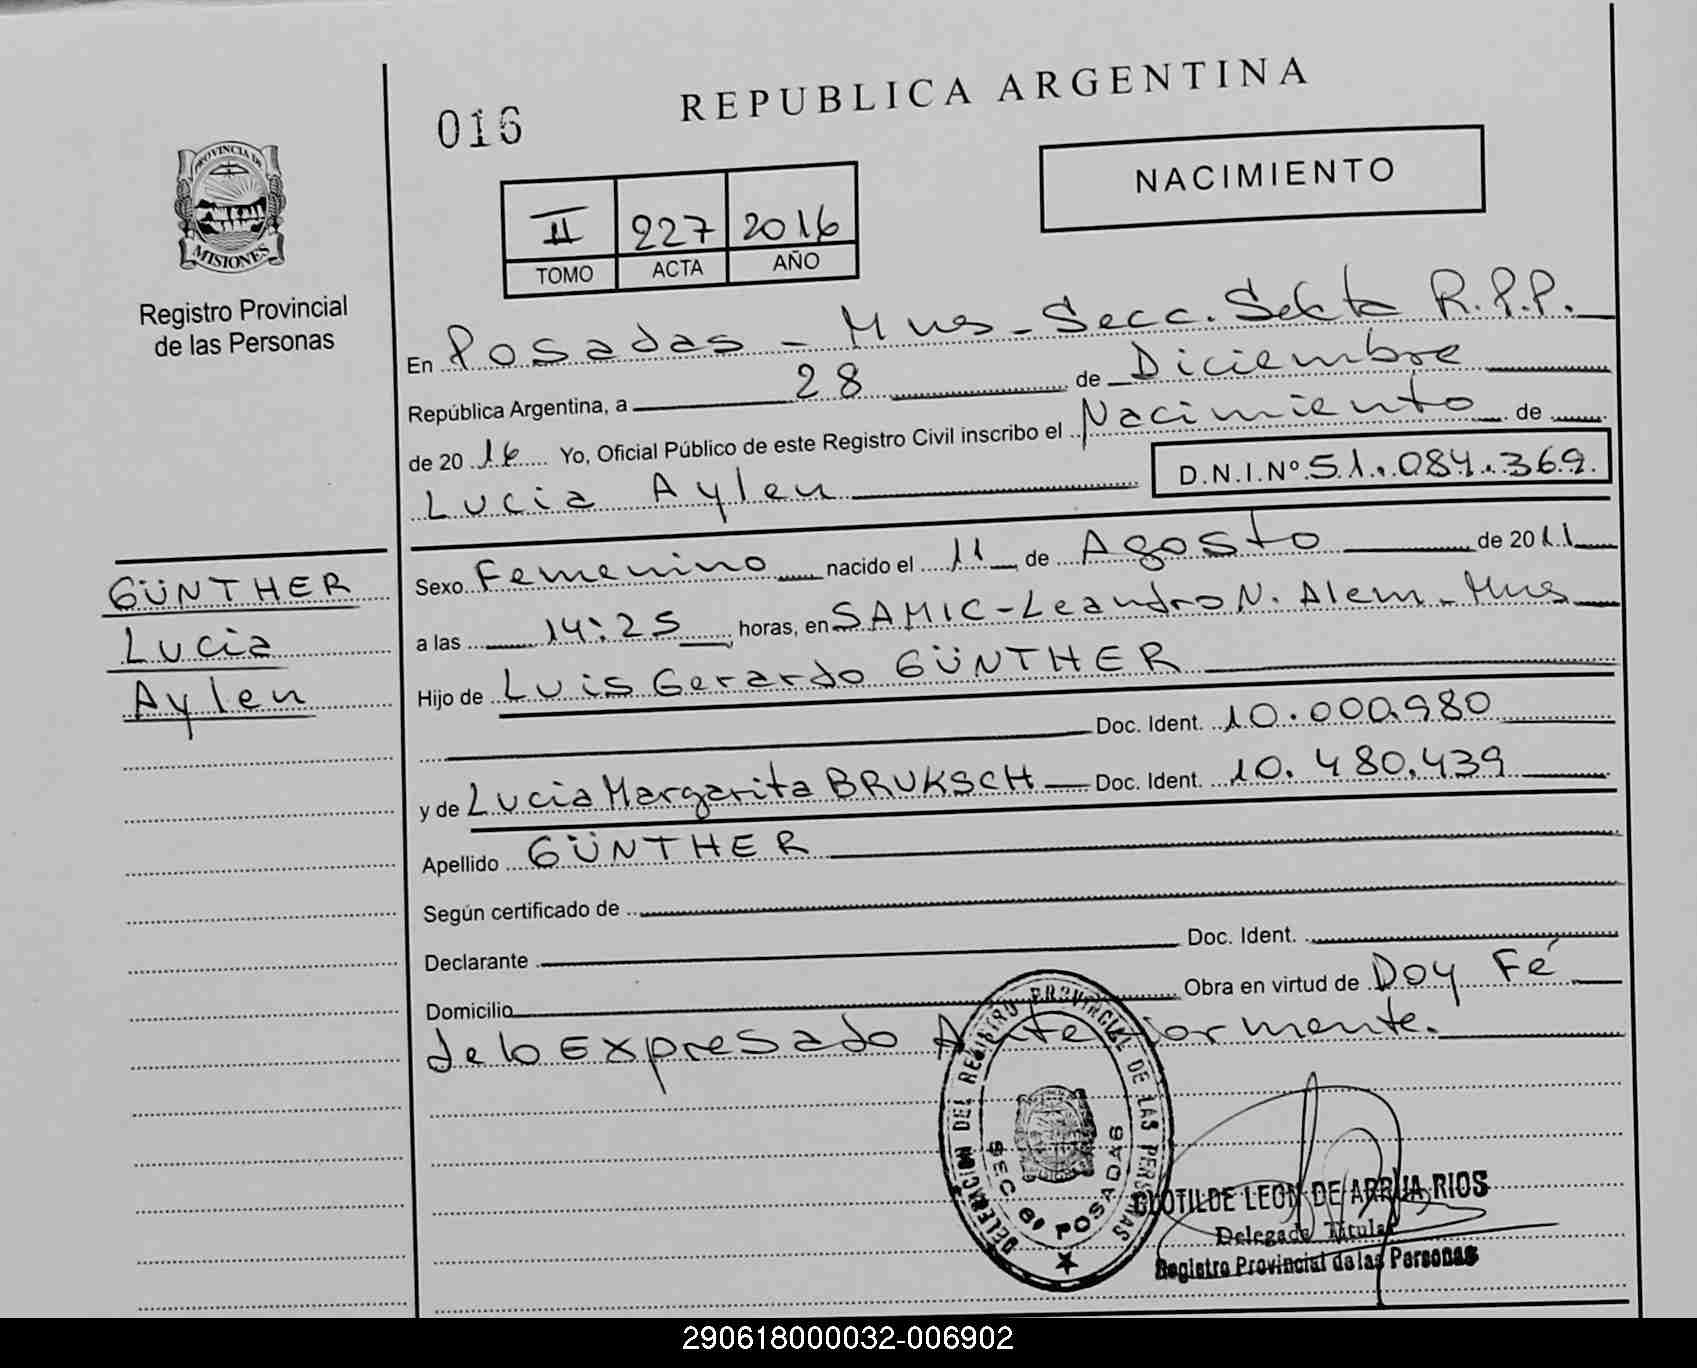 REPUBLICA ARGENTINA
016
NACIMIENTO
PROVINCIA DE
MISIONES
Registro Provincial
de las Personas
II 227 2016
TOMO ACTA AÑO
En Posadas - Mnes - Secc. Sekta R.P.P.
República Argentina, a 28 de Diciembre
de 2016 Yo, Oficial Público de este Registro Civil inscribo el Nacimiento de
Lucia Aylen D.N.I.Nº 51.084.369.
GÜNTHER
Lucia
Aylen
Sexo Femenino nacido el 11 de Agosto de 2011
a las 14:25 horas, en SAMIC-Leandro N. Alem - Mnes
Hijo de Luis Gerardo GÜNTHER
Doc. Ident. 10.000.980
y de Lucia Margarita BRUKSCH Doc. Ident. 10.480.439
Apellido GÜNTHER
Según certificado de
Declarante Doc. Ident.
Domicilio Obra en virtud de Doy Fé
de lo Expresado Anteriormente.
DELEGACION DEL REGISTRO PROVINCIAL DE LAS PERSONAS
SEC 6º POSADAS
CLOTILDE LEON DE ARRUA RIOS
Delegada Titular
Registro Provincial de las Personas
290618000032-006902